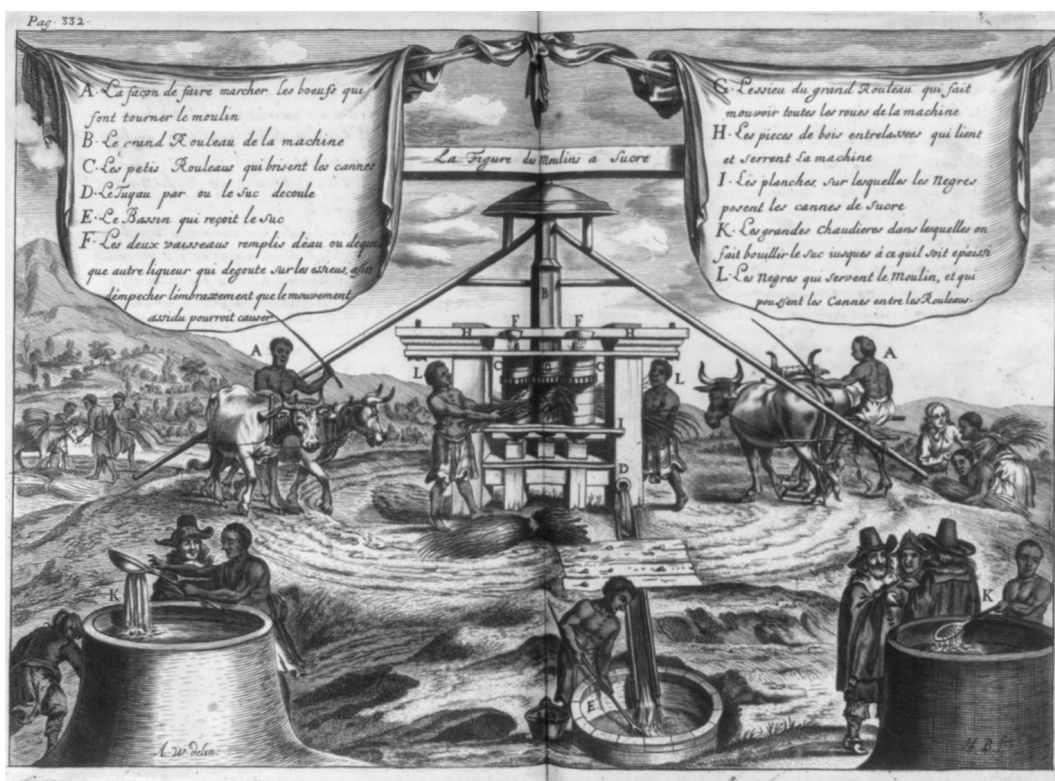 Pag. 332.
A. La façon de faire marcher les boeufs qui
font tourner le moulin
B. Le grand Rouleau de la machine
C. Les petis Rouleaus qui brisent les cannes
D. Le Tuyau par ou le suc decoule
E. Le Bassin qui reçoit le suc
F. Les deux vaisseaus remplis d'eau ou de quel
que autre liqueur qui degoute sur les essieus, afin
d'empecher l'embrazement que le mouvement
assidu pourroit causer
La Figure des Moulins a Sucre
G. L'essieu du grand Rouleau qui fait
mouvoir toutes les roues de la machine
H. Les pieces de bois entrelassees qui lient
et serrent la machine
I. Les planches, sur lesquelles les Negres
posent les cannes de sucre
K. Les grandes chaudieres dans lesquelles on
fait bouillir le suc iusques á ce quil soit epaissi
L. Les Negres qui servent le Moulin, et qui
poussent les Cannes entre les Rouleaus.
B
F F
H H
A L C G C L A
I
D
K K
E
A. W. delin.